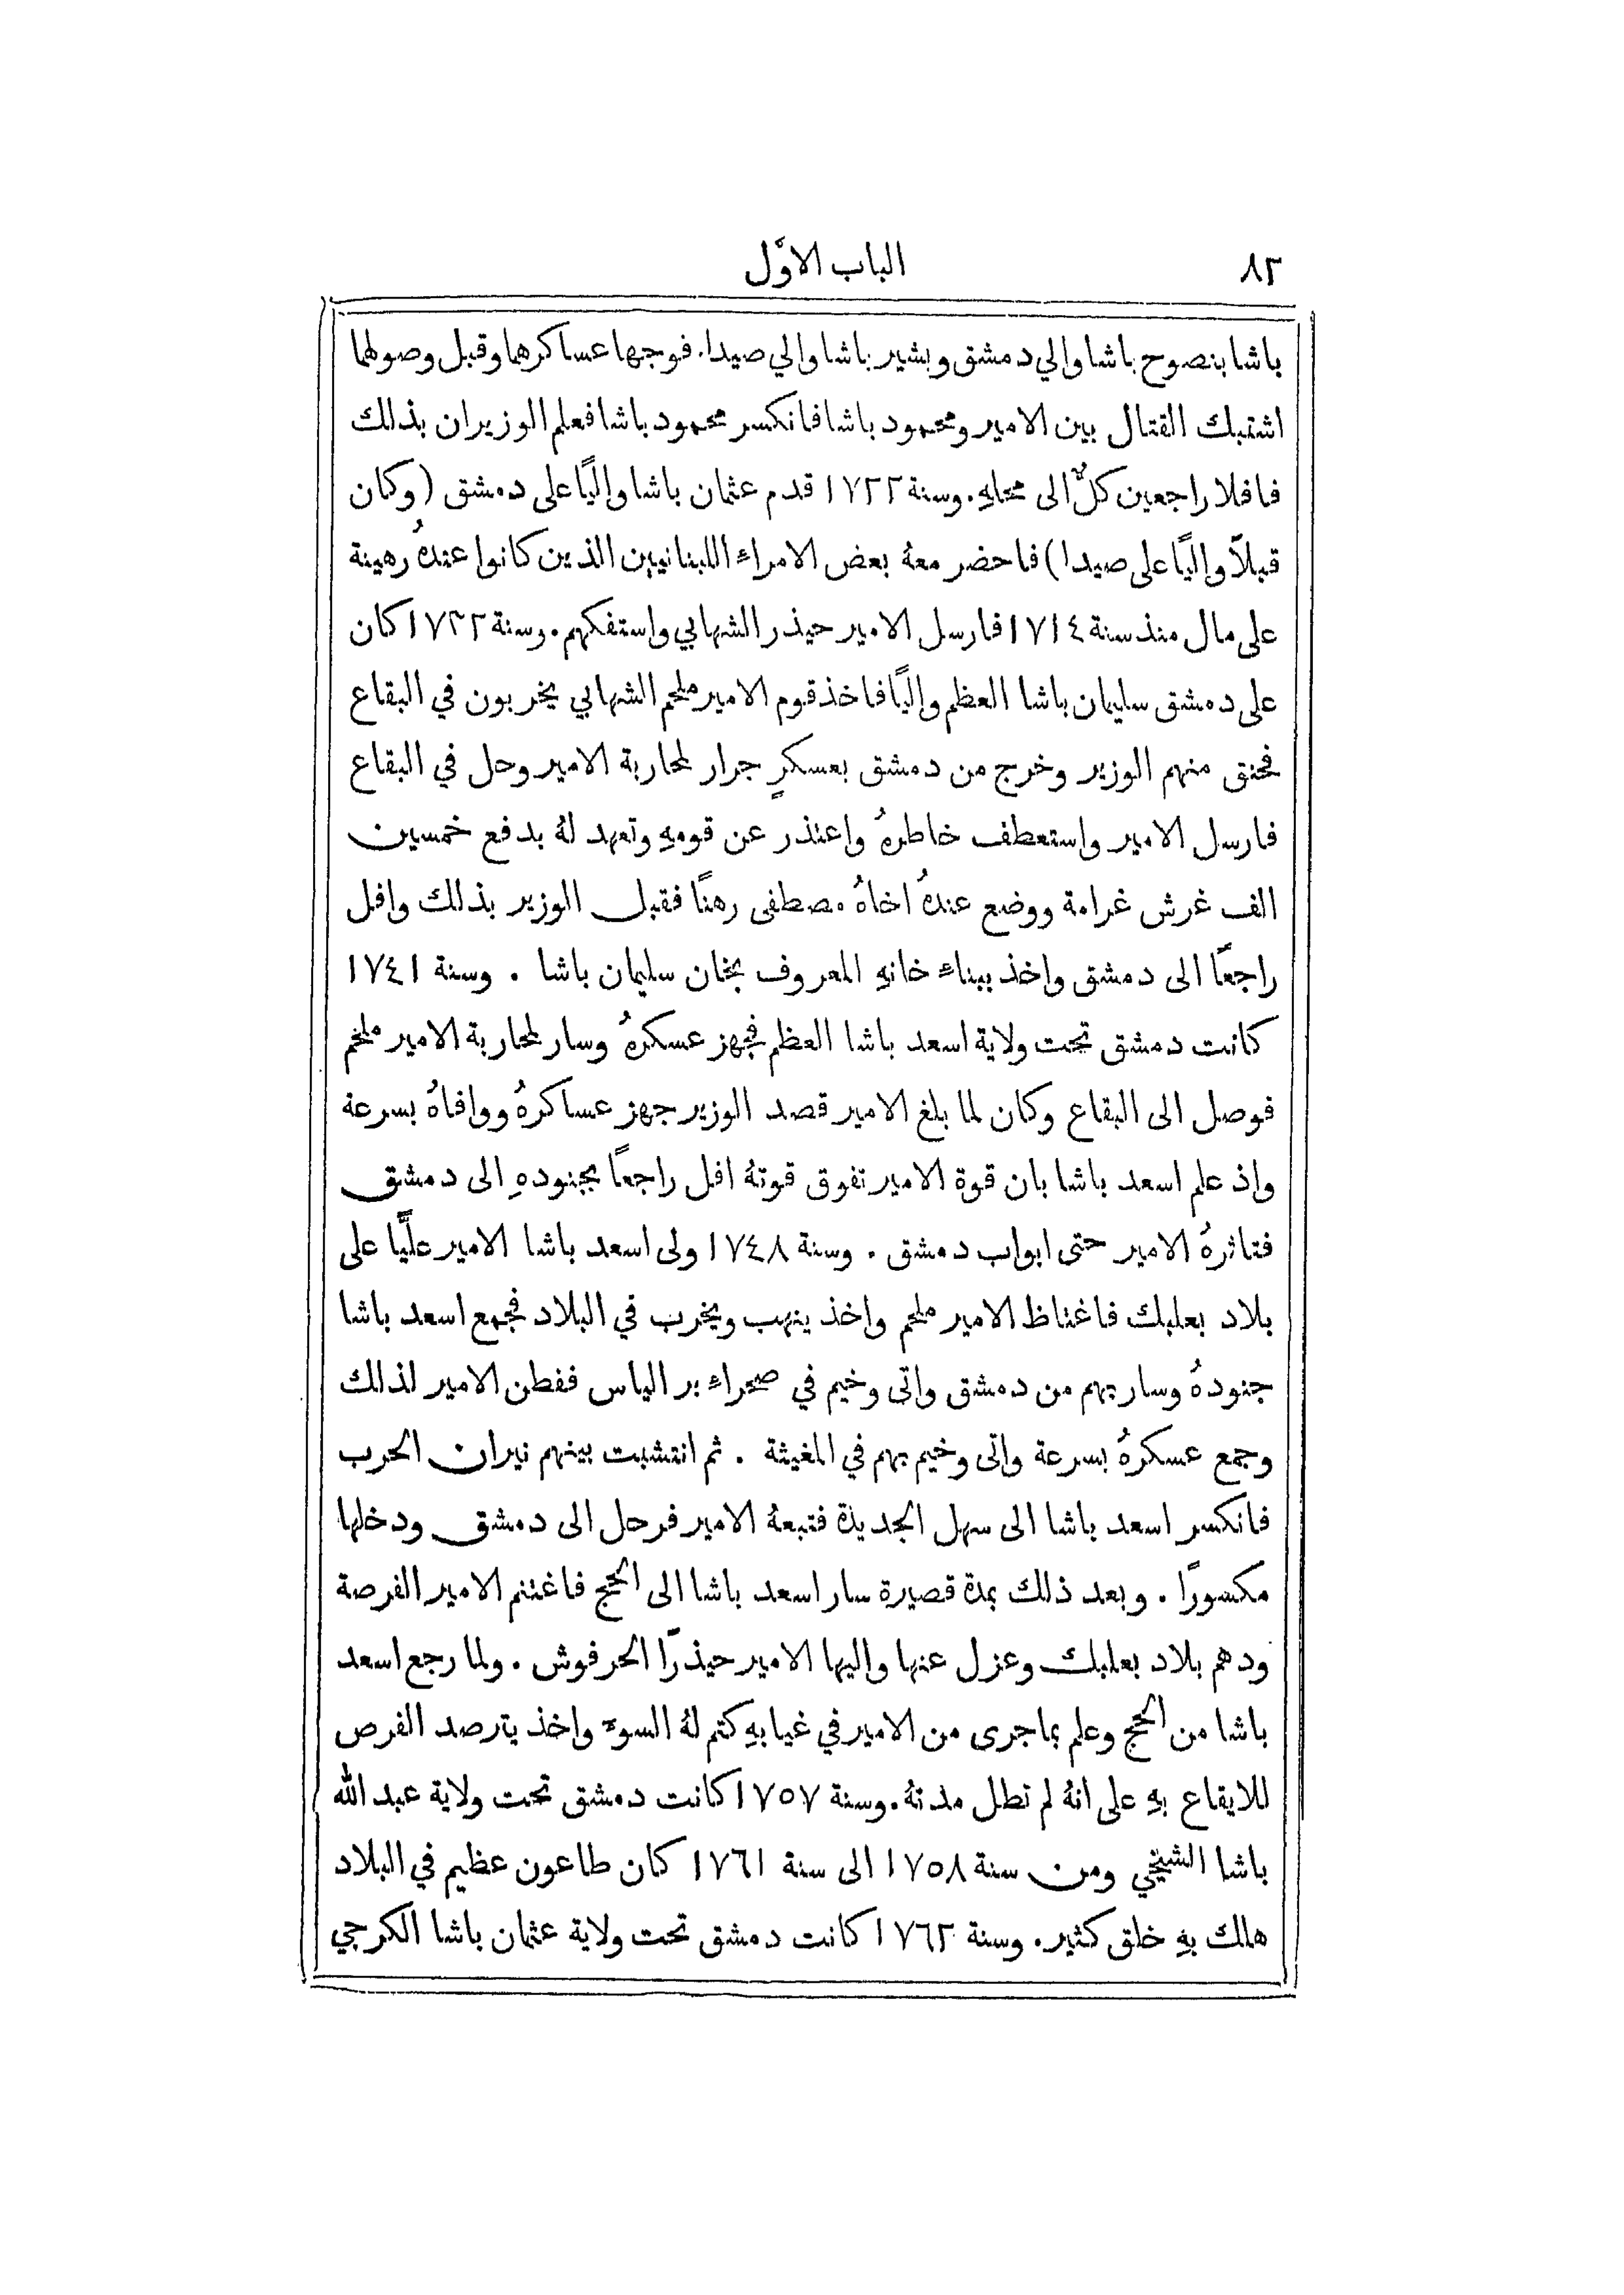 ٨٢ الباب الاوّل
باشا بنصوح باشا والي دمشق وبشير باشا والي صيدا. فوجها عساكرهما وقبل وصولهما
اشتبك القتال بين الامير ومحمود باشا فانكسر محمود باشا فعلم الوزيران بذلك
فافلا راجعين كلٌّ الى محلهِ. وسنة ١٧٢٢ قدم عثمان باشا واليًا على دمشق (وكان
قبلاً واليًا على صيدا) فاحضر معهُ بعض الامراء اللبنانيين الذين كانوا عندهُ رهينة
على مال منذ سنة ١٧١٤ فارسل الامير حيذر الشهابي واستفكهم. وسنة ١٧٣٢ كان
على دمشق سليمان باشا العظم واليًا فاخذ قوم الامير ملحم الشهابي يخربون في البقاع
فحنق منهم الوزير وخرج من دمشق بعسكرٍ جرار لمحاربة الامير وحل في البقاع
فارسل الامير واستعطف خاطرهُ واعتذر عن قومهِ وتعهد لهُ بدفع خمسين
الف غرش غرامة ووضع عندهُ اخاهُ مصطفى رهنًا فقبل الوزير بذلك وافل
راجعًا الى دمشق واخذ ببناء خانهِ المعروف بخان سليمان باشا . وسنة ١٧٤١
كانت دمشق تحت ولاية اسعد باشا العظم فجهز عسكرهُ وسار لمحاربة الامير ملحم
فوصل الى البقاع وكان لما بلغ الامير قصد الوزير جهز عساكرهُ ووافاهُ بسرعة
واذ علم اسعد باشا بان قوة الامير تفوق قوتهُ افل راجعًا بجنودهِ الى دمشق
فتاثرهُ الامير حتى ابواب دمشق . وسنة ١٧٤٨ ولى اسعد باشا الامير عليًّا على
بلاد بعلبك فاغتاظ الامير ملحم واخذ ينهب ويخرب في البلاد فجمع اسعد باشا
جنودهُ وسار بهم من دمشق واتى وخيم في صحراء بر الياس ففطن الامير لذلك
وجمع عسكرهُ بسرعة واتى وخيم بهم في المغيثة . ثم انتشبت بينهم نيران الحرب
فانكسر اسعد باشا الى سهل الجديدة فتبعهُ الامير فرحل الى دمشق ودخلها
مكسورًا . وبعد ذلك بمدة قصيرة سار اسعد باشا الى الحج فاغتنم الامير الفرصة
ودهم بلاد بعلبك وعزل عنها واليها الامير حيذرًا الحرفوش . ولما رجع اسعد
باشا من الحج وعلم بما جرى من الامير في غيابهِ كتم لهُ السوء واخذ يترصد الفرص
للايقاع بهِ على انهُ لم تطل مدتهُ. وسنة ١٧٥٧ كانت دمشق تحت ولاية عبد الله
باشا الشيخي ومن سنة ١٧٥٨ الى سنة ١٧٦١ كان طاعون عظيم في البلاد
هلك بهِ خلق كثير. وسنة ١٧٦٢ كانت دمشق تحت ولاية عثمان باشا الكرجي